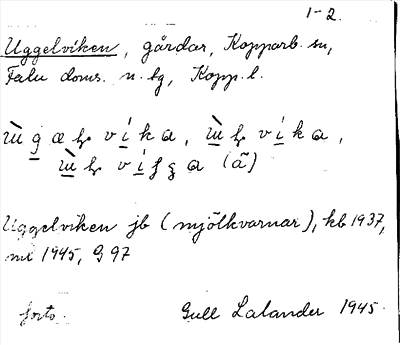 1-2.
Uggelviken, gårdar, Kopparb. sn,
Falu doms. n. tg, Kopp. l.
vika, vika,
(ã)
Uggelviken jb (mjölkvarnar), kb 1937,
ml 1945, G 97
forts. Gull Lalander 1945.